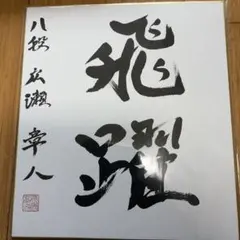 飛躍
八段 広瀬章人